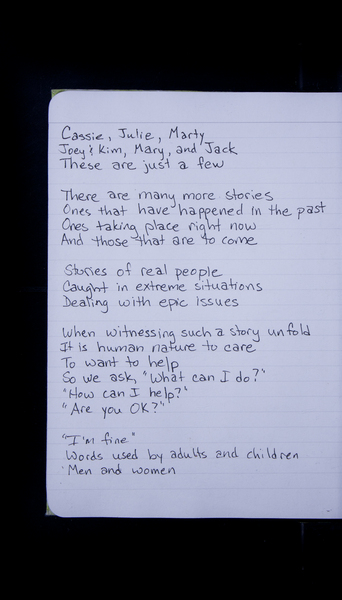 Cassie, Julie, Marty
Joey & Kim, Mary, and Jack
These are just a few
There are many more stories
Ones that have happened in the past
Ones taking place right now
And those that are to come
Stories of real people
Caught in extreme situations
Dealing with epic issues
When witnessing such a story unfold
It is human nature to care
To want to help
So we ask, "What can I do?"
"How can I help?"
"Are you OK?"
"I'm fine"
Words used by adults and children
Men and women